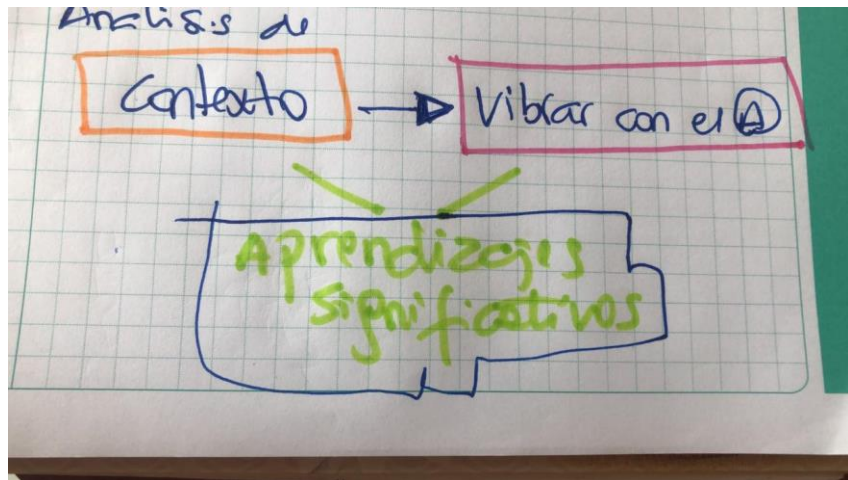 Análisis de
Contexto
Vibrar con el A
Aprendizajes
significativos